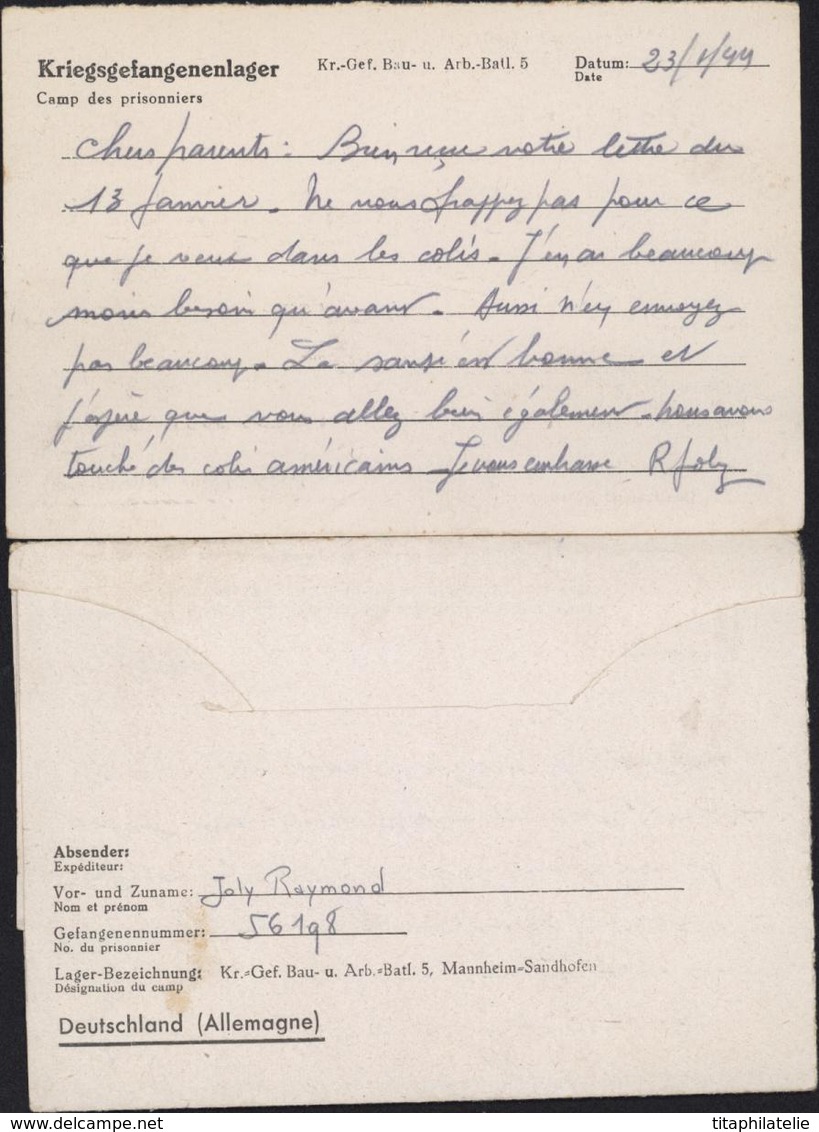 Kriegsgefangenenlager Kr.-Gef. Bau- u. Arb.-Batl. 5 Datum: 23/1/44
Date
Camp des prisonniers
Chers parents : Bien reçu votre lettre du
13 Janvier. Ne vous frappez pas pour ce
que je veux dans les colis. J'en ai beaucoup
moins besoin qu'avant. Aussi n'en envoyez
pas beaucoup. La santé est bonne et
j'espère que vous allez bien également. Nous avons
touché des colis américains Je vous embrasse R Joly
Absender:
Expéditeur:
Vor- und Zuname: Joly Raymond
Nom et prénom
Gefangenennummer: 56198
No. du prisonnier
Lager-Bezeichnung: Kr.-Gef. Bau- u. Arb.-Batl. 5, Mannheim-Sandhofen
Désignation du camp
Deutschland (Allemagne)
titaphilatelie